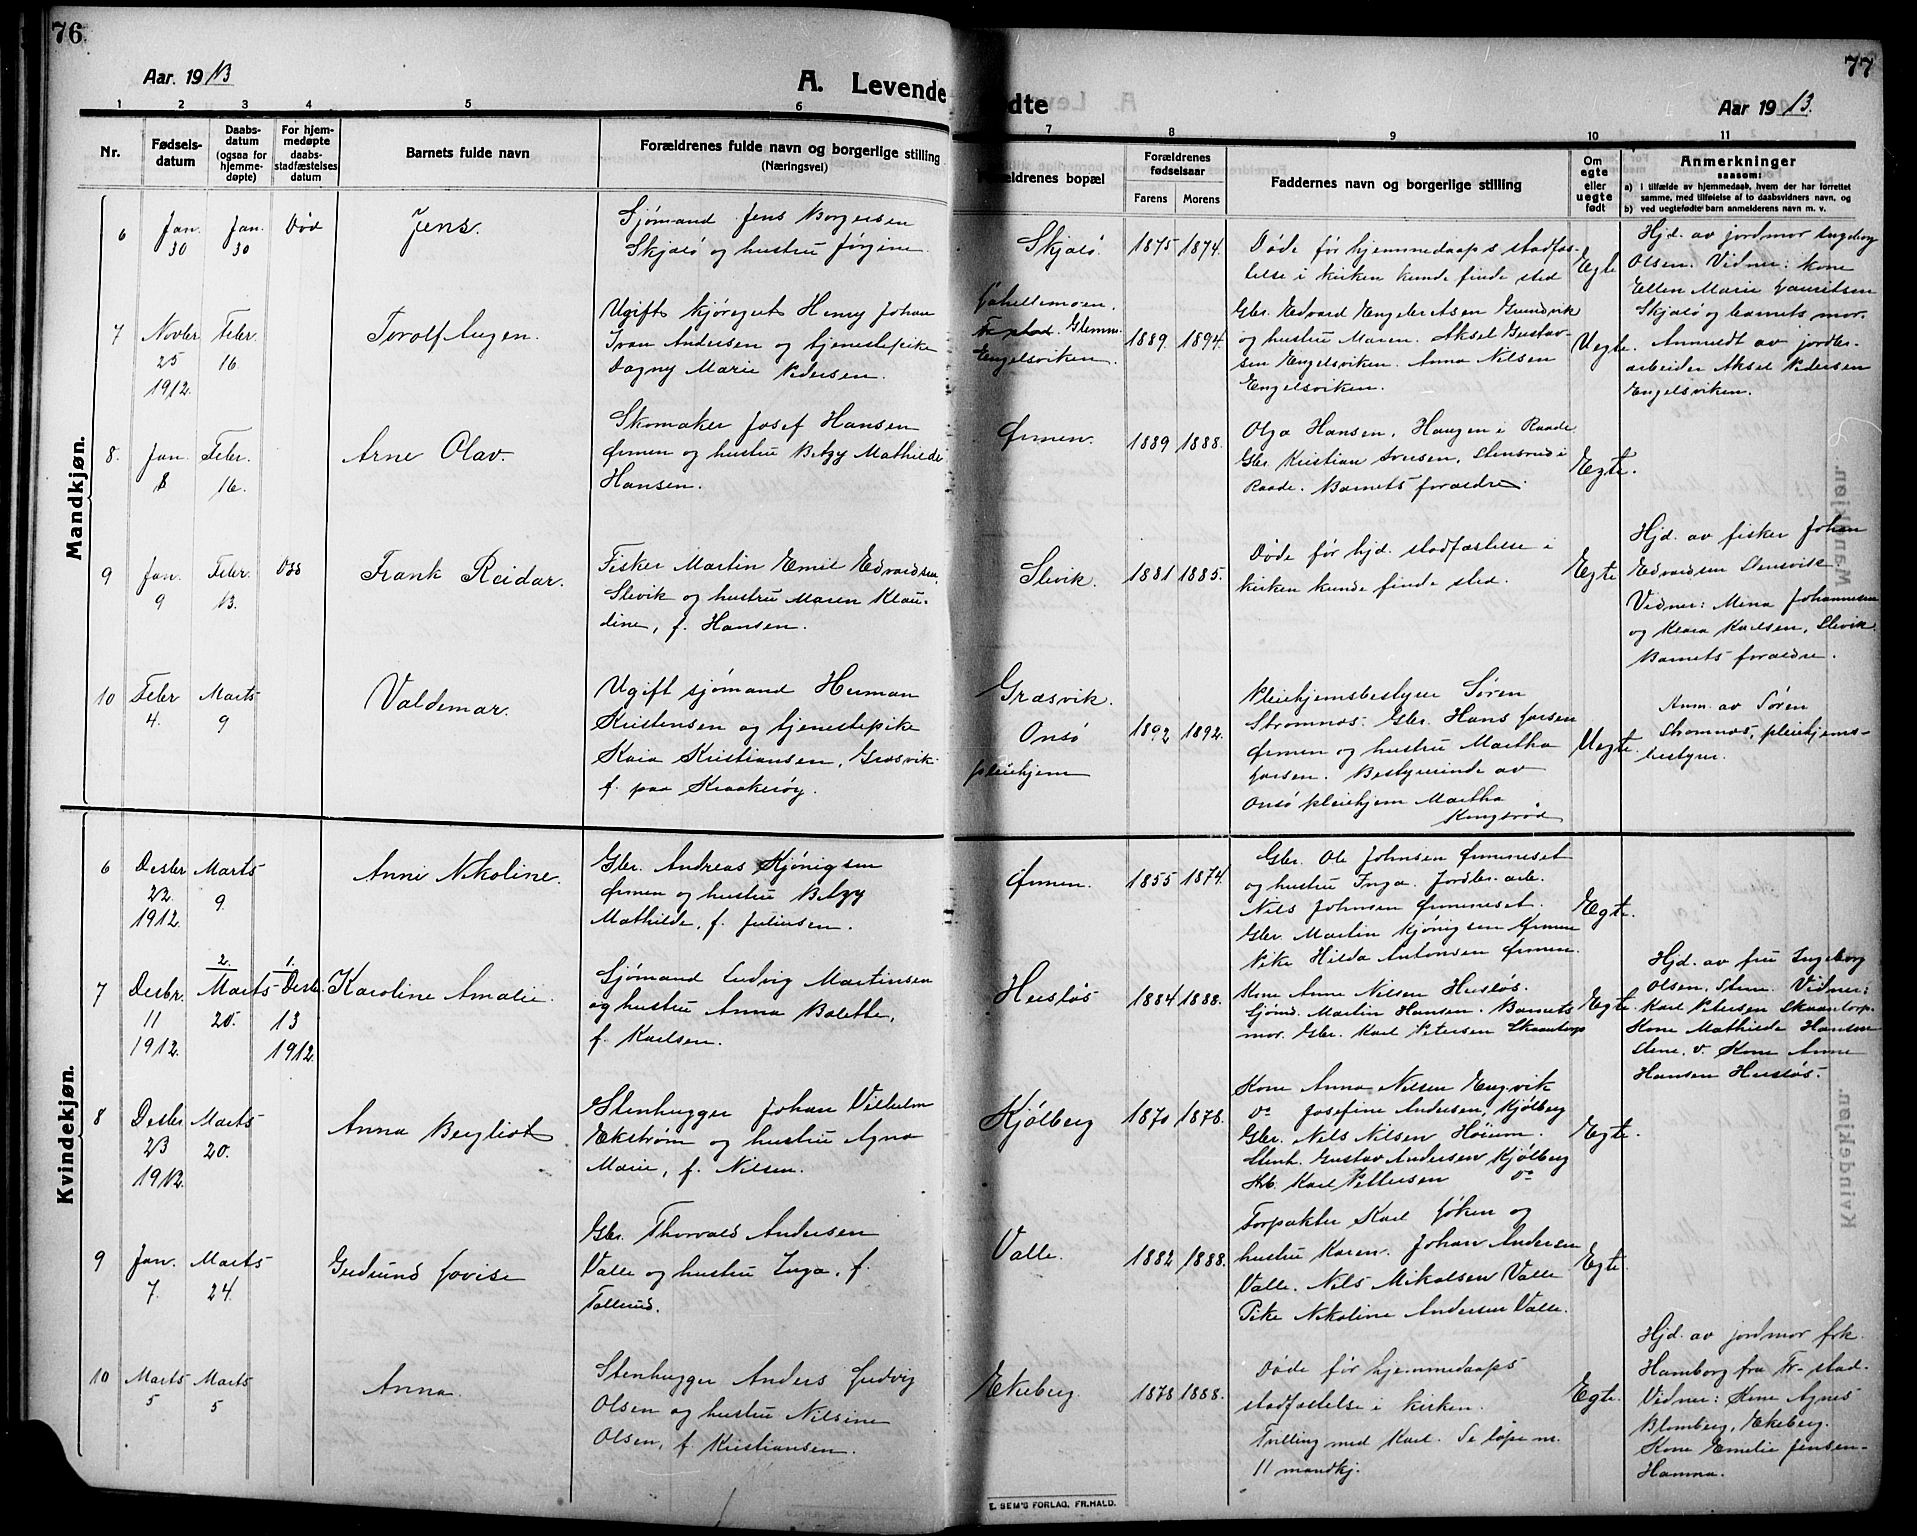 76
Aar. 1913
A. Levende
1
2
3
4
5
6
Nr.
Fødselsdatum
Daabsdatum
(ogsaa for hjemmedøpte)
For hjemmedøpte daabsstadfæstelses datum
Barnets fulde navn
Forældrenes fulde navn og borgerlige stilling
(Næringsvei)
77
ødte
Aar 1913.
7
8
9
10
11
ældrenes bopæl
Forældrenes fødselsaar
Farens
Morens
Faddernes navn og borgerlige stilling
Om egte eller uegte født
Anmerkninger
saasom:
a) i tilfælde av hjemmedaab, hvem der har forrettet
samme, med tilføielse af to daabsvidners navn, og
b) ved uegtefødte barn anmelderens navn m. v.
Mandkjøn.
6
Jan. 30
Jan. 30
Død
Jens.
Sjømand Jens Borgersen
Skjælø og hustru Jørgine
Skjælø.
1875
1874.
Døde før hjemmedaaps stadfæs-
telse i kirken kunde finde sted
Egte
Hjd. av jordmor Ingeborg
Olsen. Vidner: kone
Ellen Marie Lauritsen
Skjælø og barnets mor.
7
Novbr 25 1912.
Febr. 16
Torolf
Ugift kjøregut Henry Johan
Ivan Andersen og tjenestepike
Dagny Marie Pedersen.
Fr.stad. Glemm.
Engelsviken.
1889.
1894.
Gbr. Edvard Engebretsen Grundvik
og hustru Maren. Aksel Gustav-
sen Engelsviken. Anna Nilsen
Engelsviken.
Uegte.
Anmeldt av jordbr.
arbeider Aksel Pedersen
Engelsviken.
8.
Jan. 8
Febr. 16.
Arne Olav.
Skomaker Josef Hansen
Ørmen og hustru Betzy Mathilde
Hansen.
Ørmen.
1889
1888.
Olga Hansen, Haugen i Raade
Gbr. Kristian Iversen, Stensrud i
Raade. Barnets forældre.
Egte.
9
Jan. 9
Febr. 13.
Død
Frank Reidar.
Fisker Martin Emil Edvardsen
Slevik og hustru Maren Klau-
dine, f. Hansen.
Slevik.
1881
1885.
Døde før hjd. stadfæstelse i
kirken kunde finde sted.
Egte
Hjd. av fisker Johan
Edvardsen Slevik
Vidner: Mina Johannesen
og Klara Karlsen, Slevik.
Barnets forældre.
10
Febr 4.
Marts 9
Valdemar.
Ugift sjømand Herman
Kristensen og tjenestepike
Kaia Kristiansen, Græsvik
f. paa Kraakerøy.
Græsvik.
Onsø
pleiehjem
1892
1892.
Pleiehjemsbestyrer Søren
Strømnæs. Gbr. Hans Larsen
Ørmen og hustru Martha
Larsen. Bestyrerinde av
Onsø pleiehjem Martha
Kongsrød
Uegte.
Anm. av Søren
Strømnæs, pleiehjems-
bestyrer.
Kvindekjøn.
6
Desbr 22. 1912.
Marts 9.
Anni Nikoline.
Gbr. Andreas Kjønigsen
Ørmen og hustru Betzy
Mathilde, f. Juliusen.
Ørmen.
1855
1874.
Gbr. Ole Johnsen Ørmeneset
og hustru Inga. Jordbr. arb.
Nils Johnsen Ørmeneset.
Gbr. Martin Kjønigsen Ørmen
Pike Hilda Antonsen Ørmen.
Egte.
7
Desbr. 11 1912.
2. Marts 20.
1. Desbr. 13 1912.
Karoline Amalie.
Sjømand Ludvig Martinsen
og hustru Anna Bolette,
f. Karlsen.
Husløs
1884
1888.
Kone Anne Nilsen Husløs.
Sjømd. Martin Hansen. Barnets
mor. Gbr. Karl Petersen Skaartorp
Egte.
Hjd. av fru Ingeborg
Olsen, Stene. Vidner:
Karl Petersen Skaartorp.
Kone Mathilde Hansen
Stene. v. Kone Anne
Hansen Husløs.
8
Desbr 23 1912.
Marts 20.
Anna Bergliot
Stenhugger Johan Vilhelm
Ekstrøm og hustru Agna
Marie, f. Nilsen.
Kjølberg
1870
1878.
Kone Anna Nilsen Engvik
do Josefine Andersen, Kjølberg
Gbr. Nils Nilsen Høium.
Stenh. Gustav Andersen Kjølberg
Karl Pettersen do
Egte.
9
Jan. 7.
Marts 24.
Gudrund Lovise
Gbr. Thorvald Andersen
Valle og hustru Inga, f.
Tollerud.
Valle.
1882
1888.
Forpakter Karl Løken og
hustru Karen. Johan Andersen
Valle. Nils Mikalsen Valle
Pike Nikoline Andersen Valle.
Egte.
10
Marts 5
Marts 5
Anna.
Stenhugger Anders Ludvig
Olsen og hustru Nilsine
Olsen, f. Kristiansen.
Ekeberg.
1878
1888.
Døde før hjemmedaaps
stadfæstelse i kirken.
Tvilling med Karl. Se løpe n.
11 mandkj.
Egte.
Hjd. av jordmor frk.
Hamborg fra Fr-stad.
Vidner: Kone Agnes
Blomberg, Ekeberg.
Kone Emelie Jensen-
Hamna.
E. SEM'S FORLAG, FR.HALD.